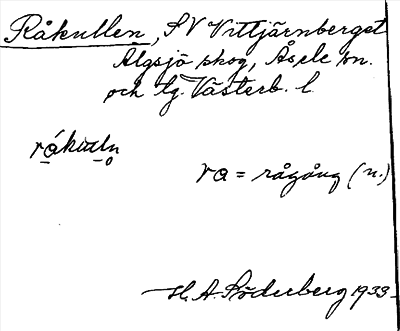 Råkullen, SV Vittjärnberget
Älgsjö skog, Åsele sn.
och tg. Västerb. l.
ra = rågång (n.)
H. A. Söderberg 1933